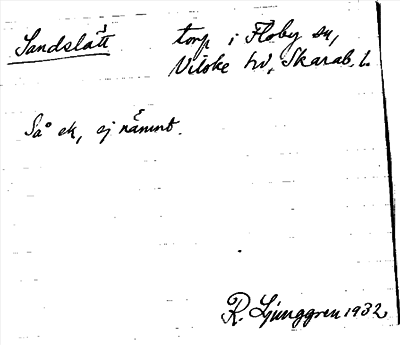 Sandslätt torp i Floby sn,
Vilske hd, Skarab. l.
Så ek, ej nämnt.
R. Ljunggren 1932